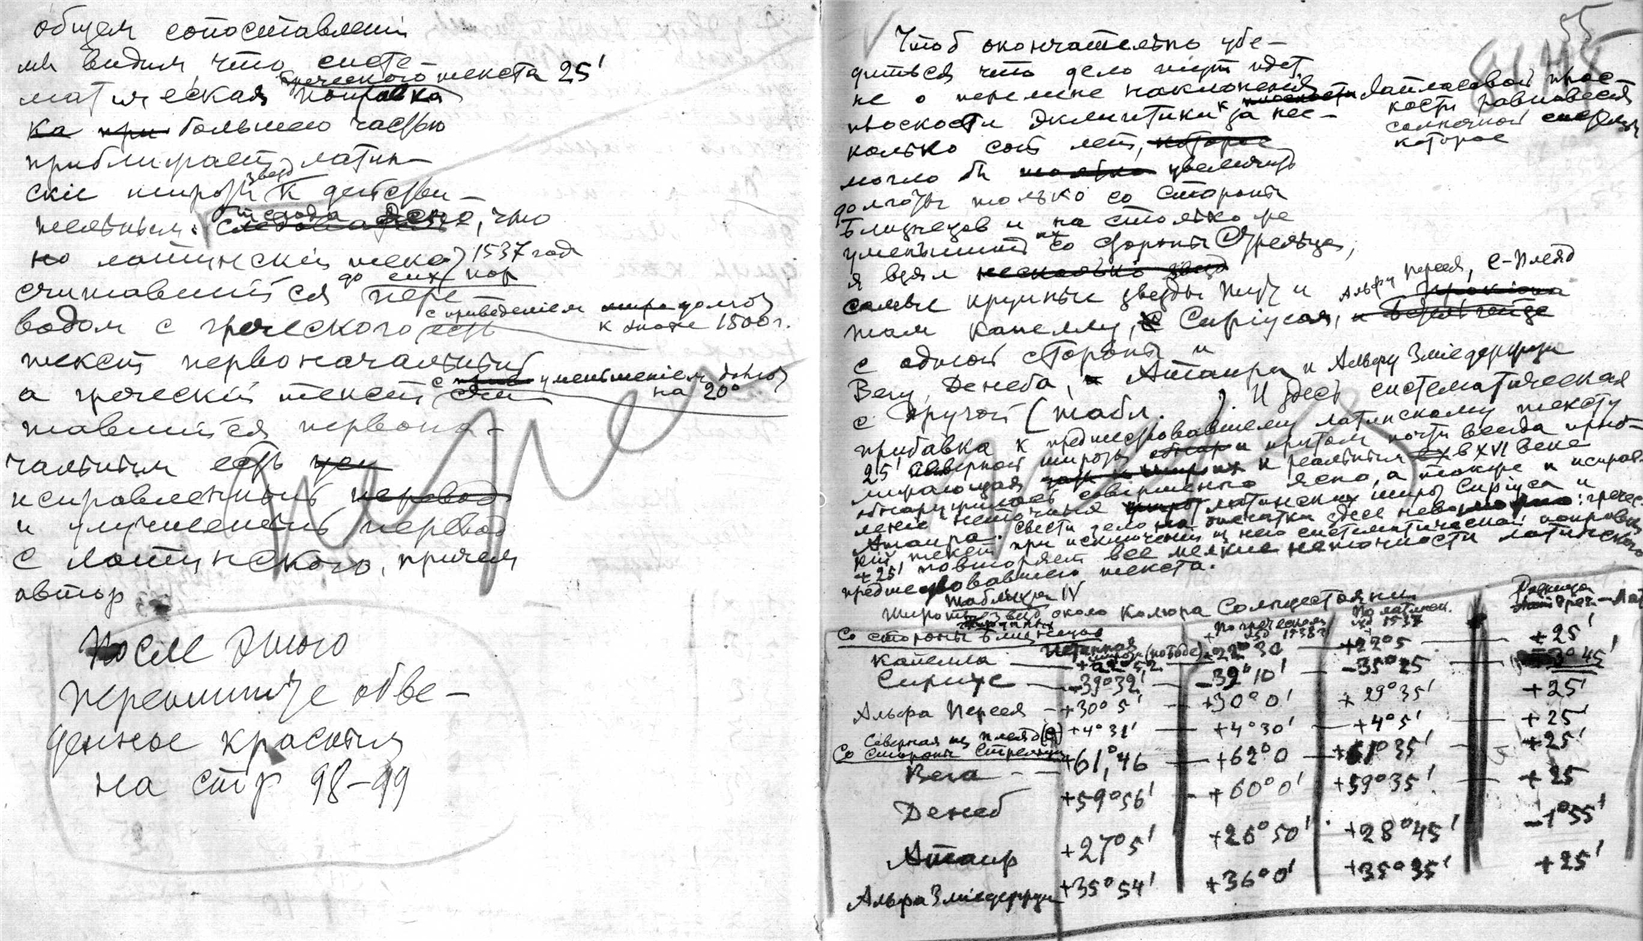 общем сопоставленiи
мы видим что систе-
матическая поправка греческого текста 25'
ка при большею частью
приближает латин-
скiе широты звезд к действи-
тельным.
но латинскiй текст 1537 год
считавшiйся до сих пор пере-
водом с греческого есть с приведением долгот к эпохе 1500 г.
текст первоначальный
а греческiй текст с уменьшенiем долгот на 20°
тавшiйся первона-
чальным есть
исправленный перевод
и улучшенный перевод
с латинского, причем
автор
После этого
перепишите обве-
денное красным
на стр 98-99
55
Чтоб окончательно убе-
диться что дело идет
не о перемене наклонения
плоскости эклиптики к Лапласовой плос-
кости равновесия
солнечной
которое
за нес-
колько сот лет, которое
могло бы увеличить
долготы только со стороны
Близнецов и на столько же
уменьшить их со стороны Стрельца,
я взял несколько звезд
самые крупные звезды
Альфу Персея, е-Плеяд
там Капеллу, Сирiуса,
с одной стороны и
Вегу, Денеба, Атаира и Альфу Змiедержца
с другой (табл. ) И здесь систематическая
прибавка к предшествовавшему латинскому тексту
25' северной широты и притом почти всегда
к реальным в XVI веке
обнаруживает совершенно ясно, а также и исправ-
ление неточных латинских широт Сирiуса и
Атаира. Свести дело на опечатки здесь невозможно: гречес-
кiй текст при исключении из него систематической поправки
+25' повторяет все мелкие неточности латинского
предшествовавшего текста.
Таблица IV
Широты звезд около Колюра Солнцестоянiй
По греческому изд 1538 г
По латинск. изд 1537
Разница Греч-Лат
Со стороны Близнецов
Капелла +22°52' +22°30 +22°5 +25'
Сирiус -39°32' -39°10' -35°25 -3°45'
Альфа Персея +30°5' +30°0' +29°35' +25'
Северная из плеяд (е) +4°31' +4°30' +4°5' +25'
Со стороны Стрельца
Вега +61,46 +62°0 +61°35' +25'
Денеб +59°56' +60°0' +59°35' +25
Атаир +27°5' +26°50' +28°45' -1°55'
Альфа Змiедержца +35°54' +36°0' +35°35' +25'